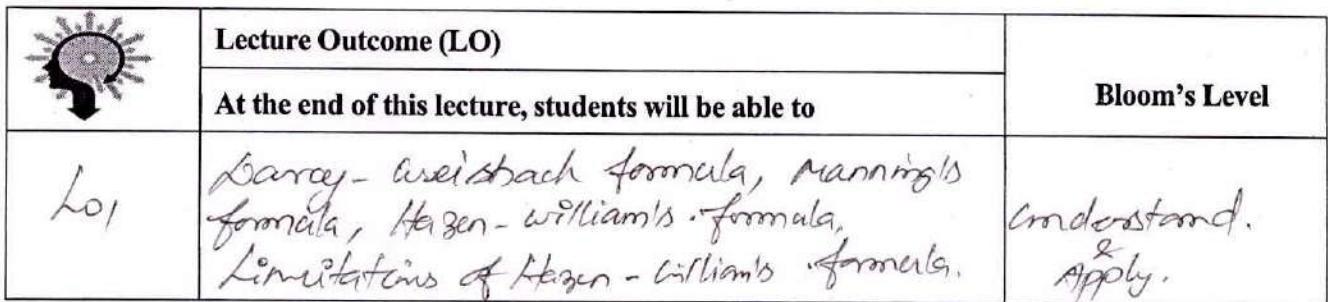 Lecture Outcome (LO)
At the end of this lecture, students will be able to
Bloom's Level
LO1
Darcy-Weisbach formula, Manning's
formula, Hazen-William's formula,
Limitations of Hazen-William's formula.
Understand.
&
Apply.